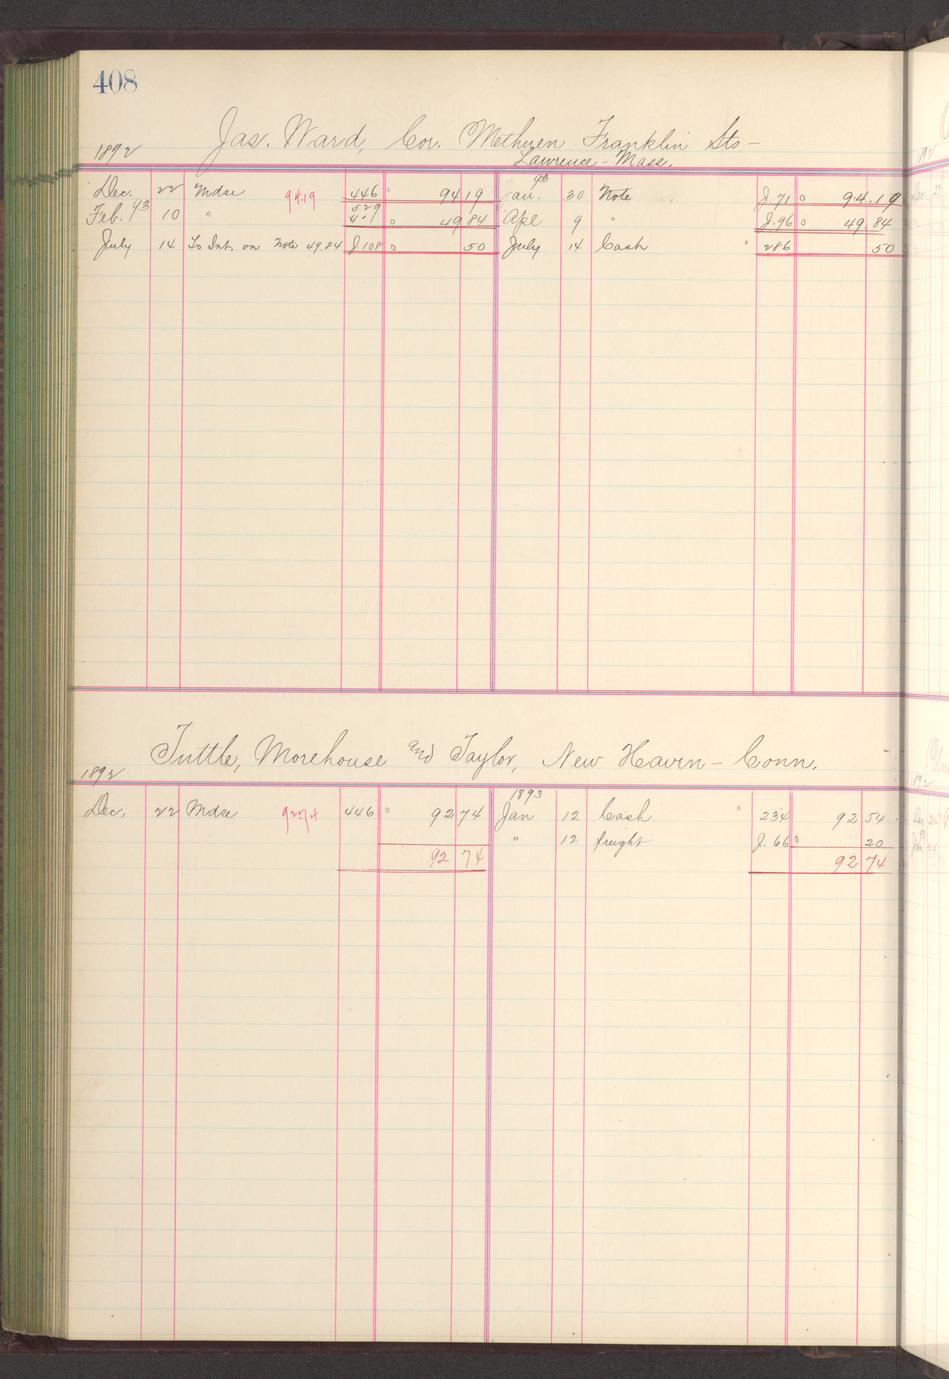 408
Jas. Ward, Cor. Methuen Franklin Sts –
1892 Lawrence – Mass.
93
Dec. 22 Mdse 94.19 446 94 19 Jan. 30 Note J. 71 94.19
529
Feb. 93 10 " 49 84 Ape 9 " J. 96 49.84
July 14 To Int. on Note 49.84 J 108 50 July 14 Cash 286 50
Tuttle, Morehouse and Taylor, New Haven – Conn.
1892
1893
Dec. 22 Mdse 92.74 446 92 74 Jan 12 Cash 234 92 54
" 12 freight J. 66 20
92 74 92 74